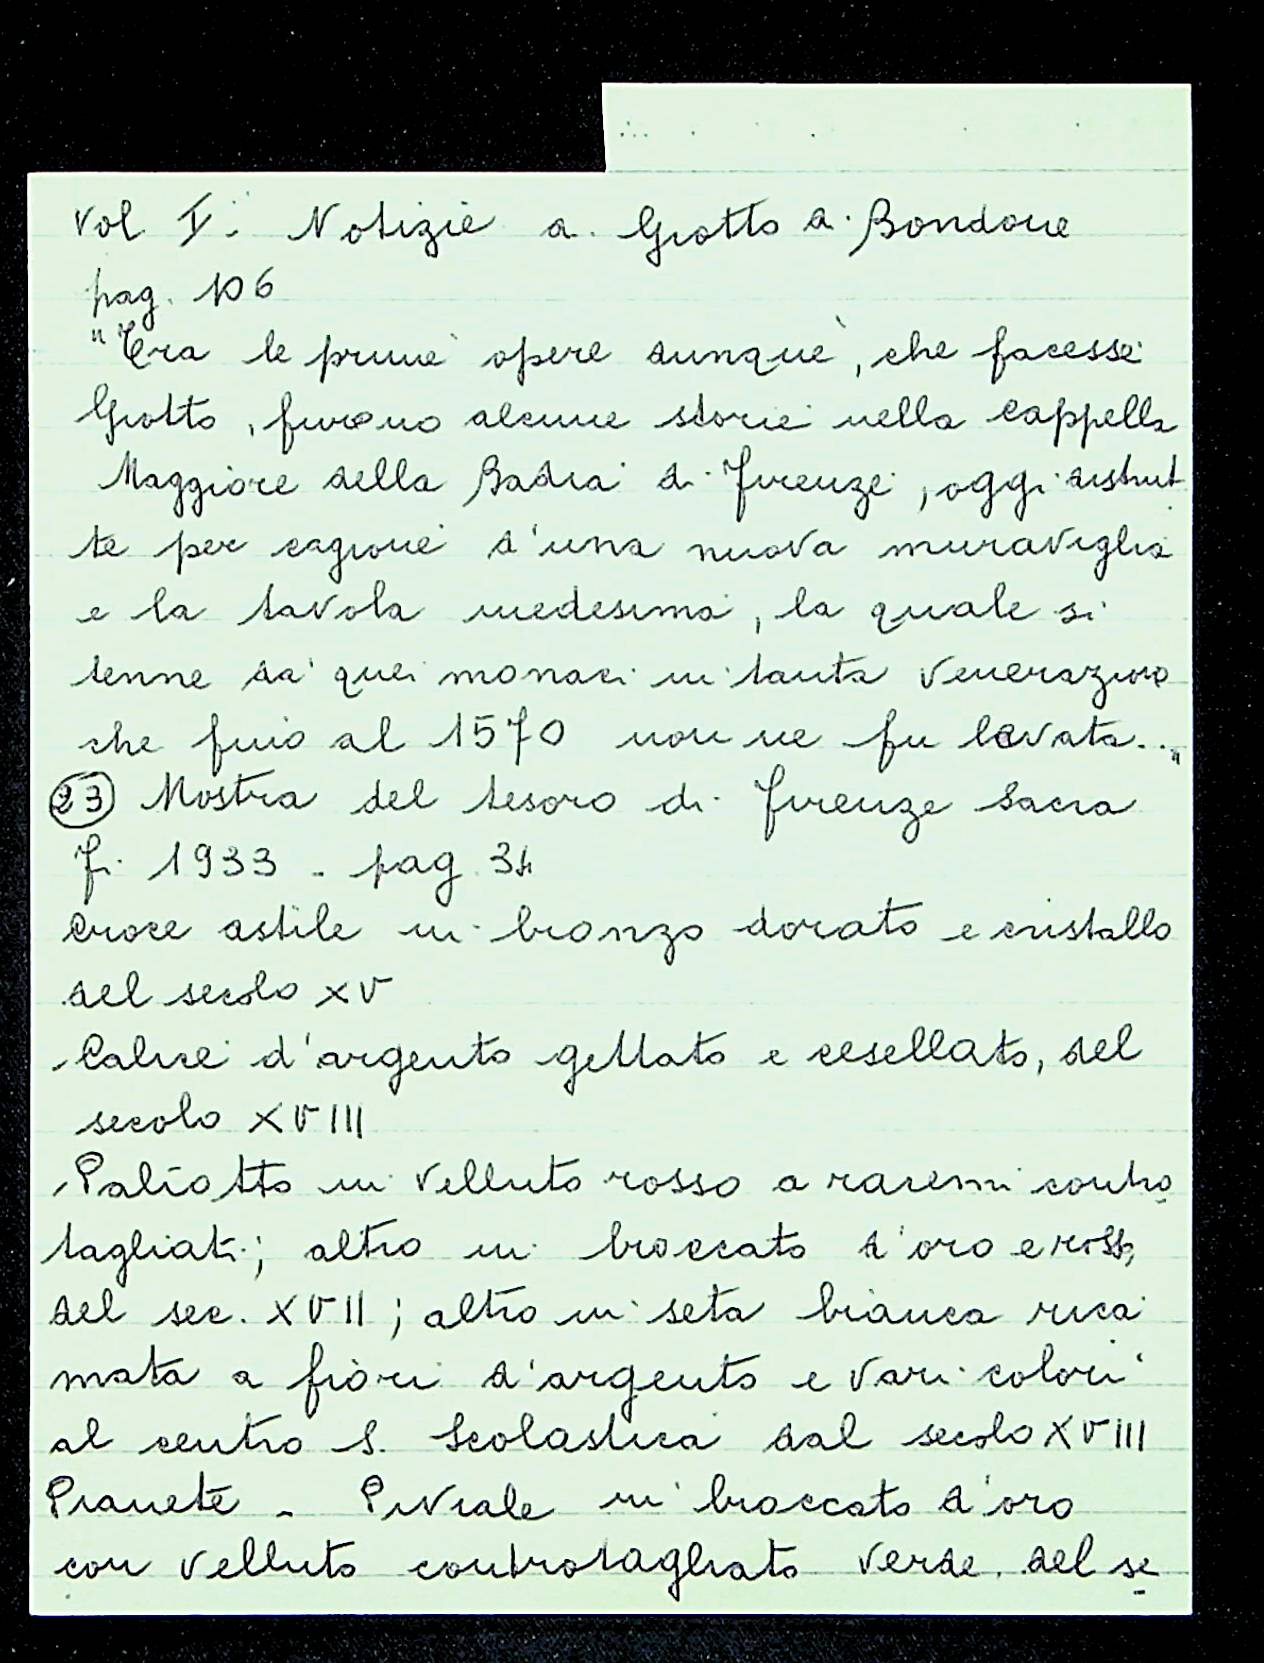 Vol. V. Notizie a. Giotto di Bondone
pag. 106
"Tra le prime opere dunque, che facesse
Giotto, furono alcune storie nella cappella
Maggiore della Badia di Firenze, oggi distrut
te per cagione d'una nuova muraviglia
e la tavola medesima, la quale si
tenne da quei monaci in tanta venerazione
che fino al 1570 non ne fu levata..."
(23) Mostra del tesoro di Firenze Sacra
Fi. 1933 - pag. 34
Croce astile in bronzo dorato e cristallo
del secolo XV
Calice d'argento gettato e cesellato, del
secolo XVIII
Paliotto in velluto rosso a racemi contro
tagliati; altro in broccato d'oro e rosso,
del sec. XVII; altro in seta bianca rica
mata a fiori d'argento e vari colori
al centro S. Scolastica dal secolo XVIII
Pianete - Piviale in broccato d'oro
con velluto controtagliato verde. del se